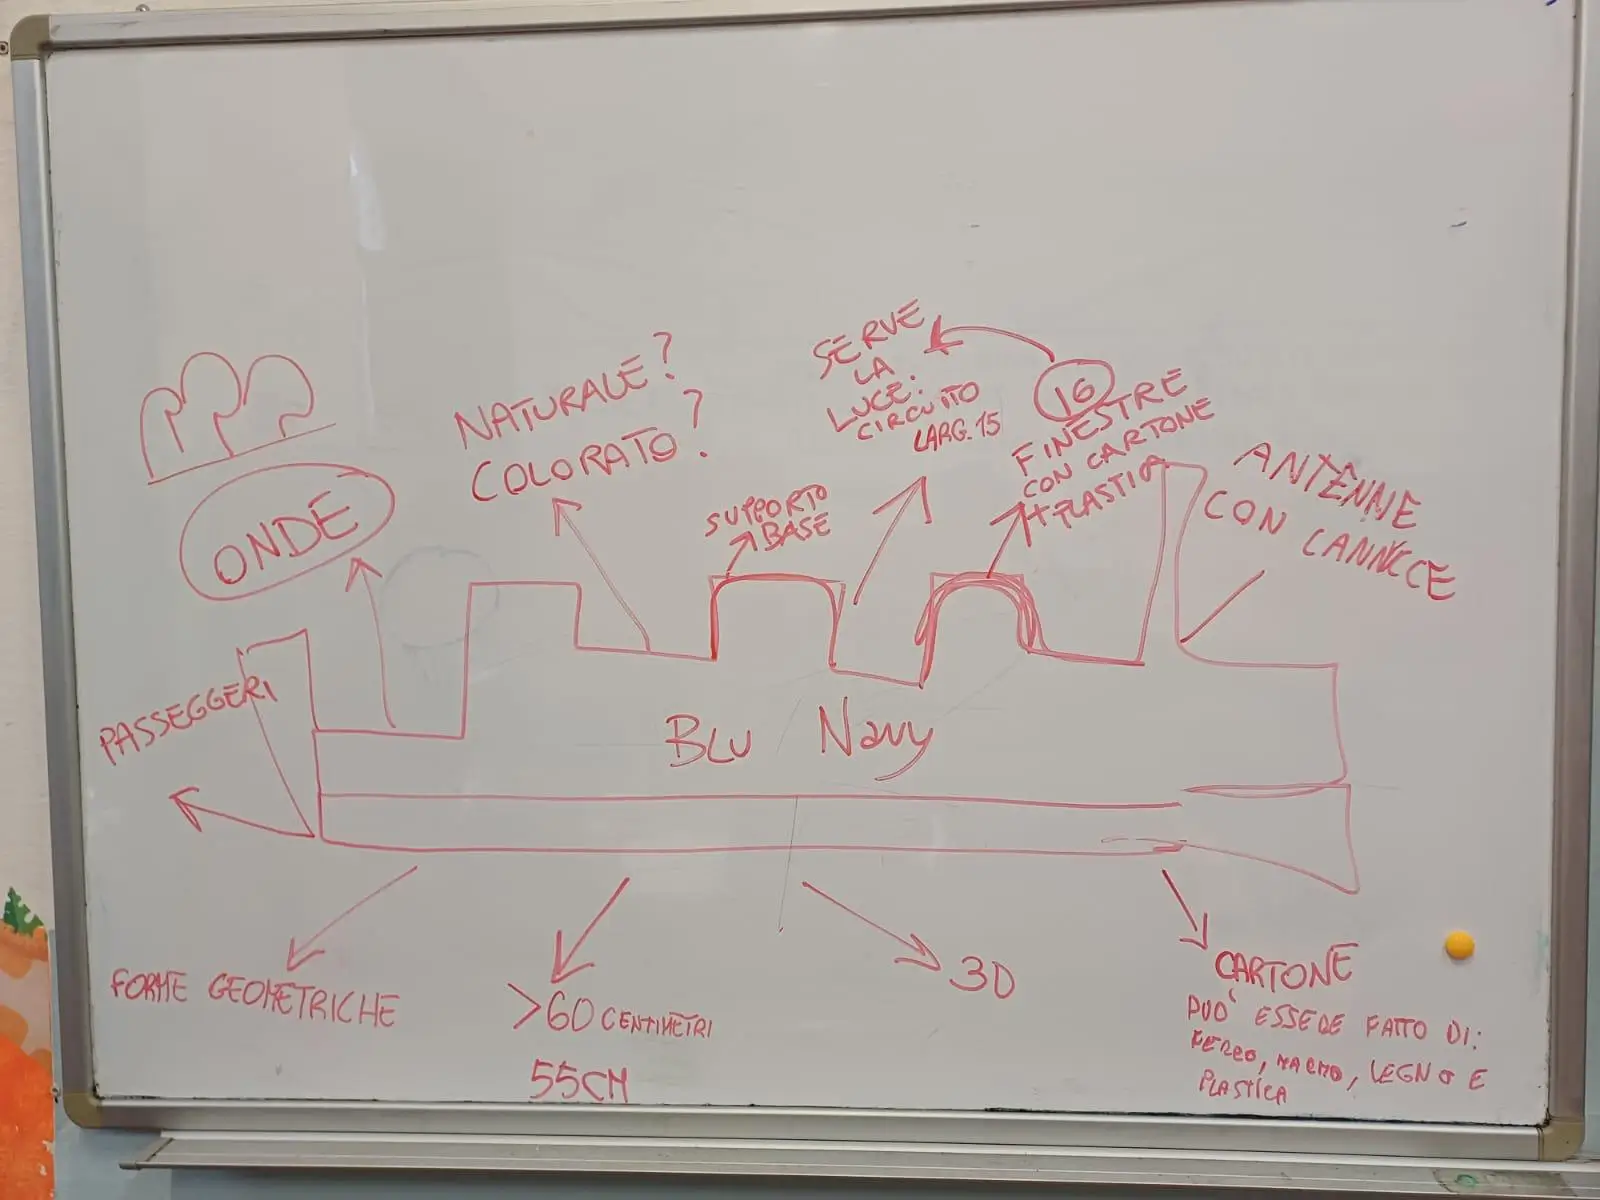 SERVE
LA
LUCE.
CIRCUITO
LARG. 15
16
FINESTRE
CON CARTONE
+ PLASTICA
NATURALE?
COLORATO?
ANTENNE
CON CANNUCCE
SUPPORTO
BASE
ONDE
PASSEGGERI
BLU Navy
FORME GEOMETRICHE
>60 CENTIMETRI
55CM
3D
CARTONE
PUO' ESSERE FATTO DI:
FERRO, MARMO, LEGNO E
PLASTICA